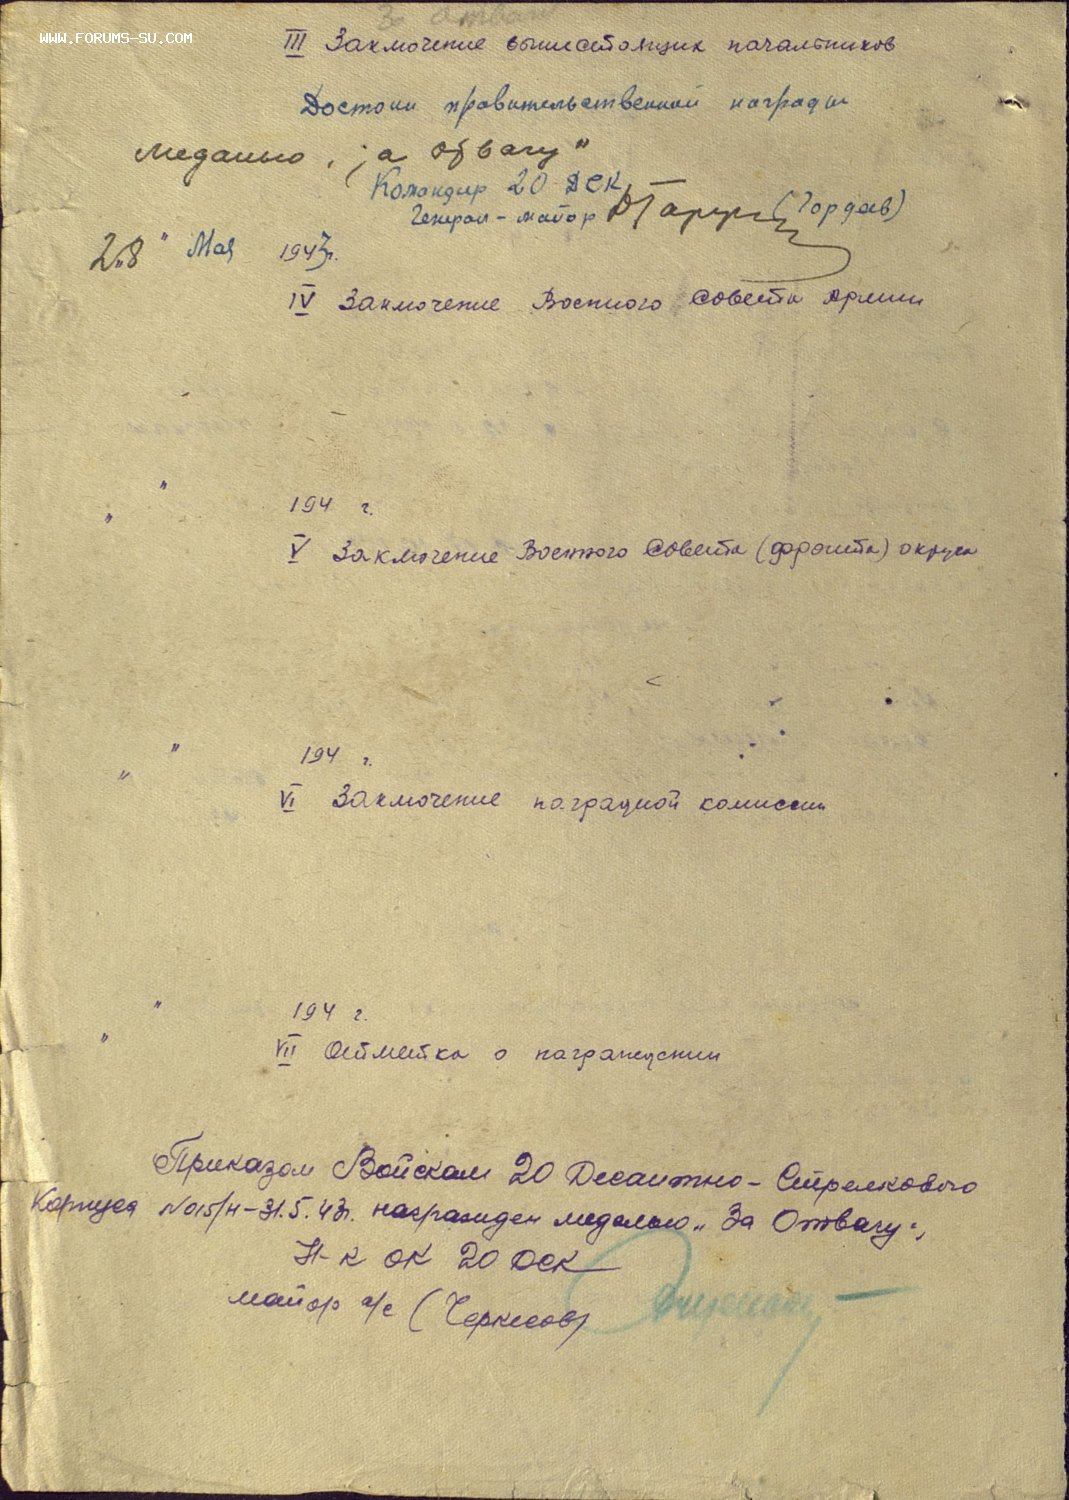 За отвагу
WWW.FORUMS-SU.COM
III Заключение вышестоящих начальников
Достоин правительственной награды
медалью „За отвагу"
Командир 20 ДСК
Генерал-майор (Гордов)
„28" Мая 1943г.
IV Заключение Военного Совета Армии
" " 194 г.
V Заключение Военного Совета (фронта) округа
" " 194 г.
VI Заключение наградной комиссии
" " 194 г.
VII Отметка о награждении
Приказом Войскам 20 Десантно-Стрелкового
Корпуса №015/н-31.5.43г. награжден медалью „За Отвагу".
Н-к ОК 20 ДСК
майор а/с (Черкесов)